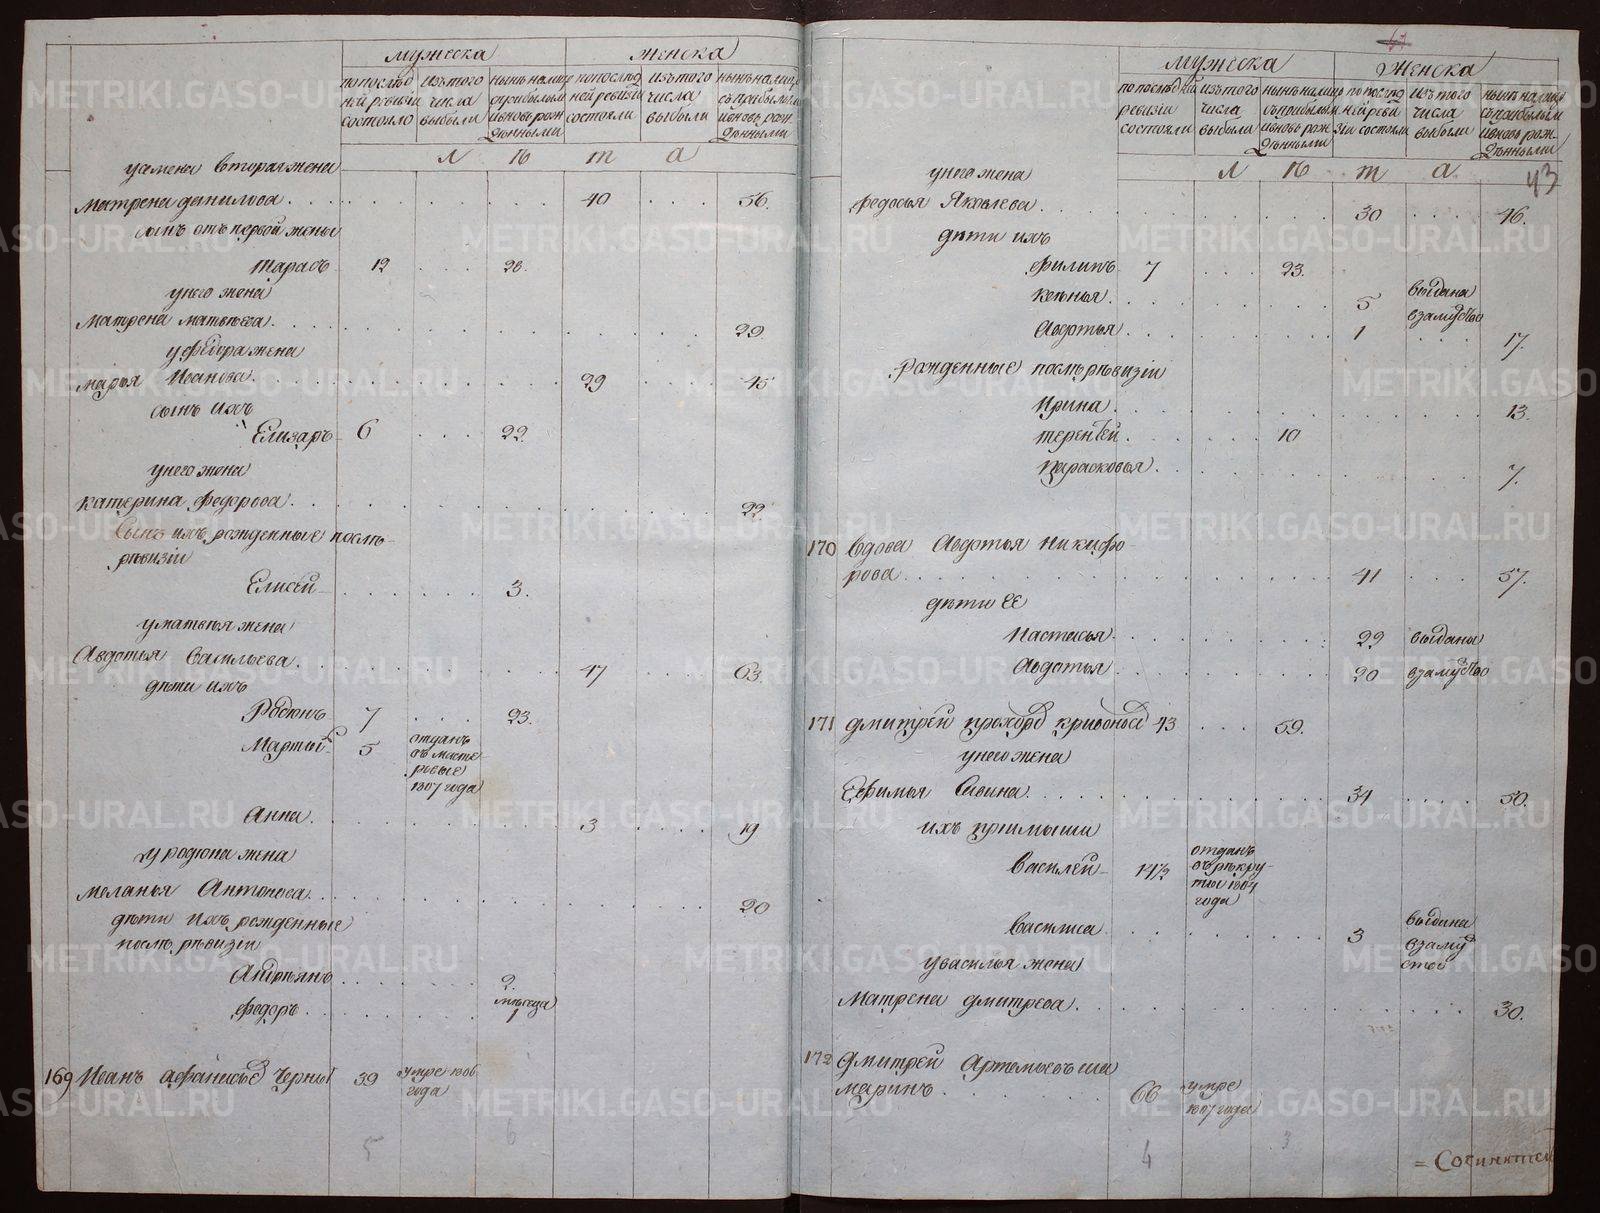 мужеска женска
попослѣд ней ревизіи состояло
изътого числа выбыли
нынѣ налице
ивновь рож
денными
попослѣд ней ревизіи состояли
изътого числа выбыли
нынѣ налице
съ прибылыми
ивновь рож
денными
Л ѣ т а
усамена вторая жена
матрена данилова . . . 40 . . . 56.
сынъ отъ первой жены
тарасъ 12 . . . 28.
унего жена
матрена матвѣева . . . 29.
уфедора жена
марья Иванова . . . 29 . . . 45
сынъ ихъ
Елизаръ 6 . . . 22.
унего жена
катерина федорова . . . 22.
сынъ ихъ рожденные послѣ
ревизіи
Елисей . . . 3.
уматвѣя жена
Авдотья васильева . . . 47 . . . 63.
дѣти ихъ
Родіонъ 7 . . . 23.
Мартын 5 отданъ
въ масте
ровые
1807 года
Анна . . . 3 . . . 19
уродіона жена
меланья Антонова . . . 20
дѣти ихъ рожденные
послѣ ревизіи
Андреянъ . . . 2.
федоръ . . . месеца
1
169 Иванъ афанасьевъ Черны 39 умре 1806
года
5 6
43
мужеска женска
попослѣдней
ревизіи
состояли
изътого
числа
выбыли
нынѣ налице
съприбылым
ивновь рож
денными
по послѣд
ней реви
зіи состояли
изътого
числа
выбыли
нынѣ налице
съприбылым
ивновь рож
денными
Л ѣ т а
унего жена
федосья Яковлева . . . 30 . . . 46.
дѣти ихъ
филипъ 7 . . . 23.
ксенья . . . 5 выдана
взамужо
Авдотья . . . 1 . . . 17.
рожденные послѣ ревизіи
Ирина . . . 13.
терентей . . . 10
парасковья . . . 7.
170 вдова Авдотья никифо
рова . . . 41 . . . 57.
дѣти ее
настасья . . . 22 выданы
Авдотья . . . 20 взамужо
171 дмитрей прохоровъ кривоносовъ 43 . . . 59.
унего жена
Ефимья савина . . . 34 . . . 50.
ихъ пріимыши
василей 14½ отданъ
въ рекру
ты 1804
года
василиса . . . 3 выдана
взаму
ство
увасилья жена
матрена дмитрева . . . 30.
172 дмитрей Артемьевъ ша
маринъ . . . 66 умре
1807 года
4 3
= Сочинятел
METRIKI.GASO-URAL.RU